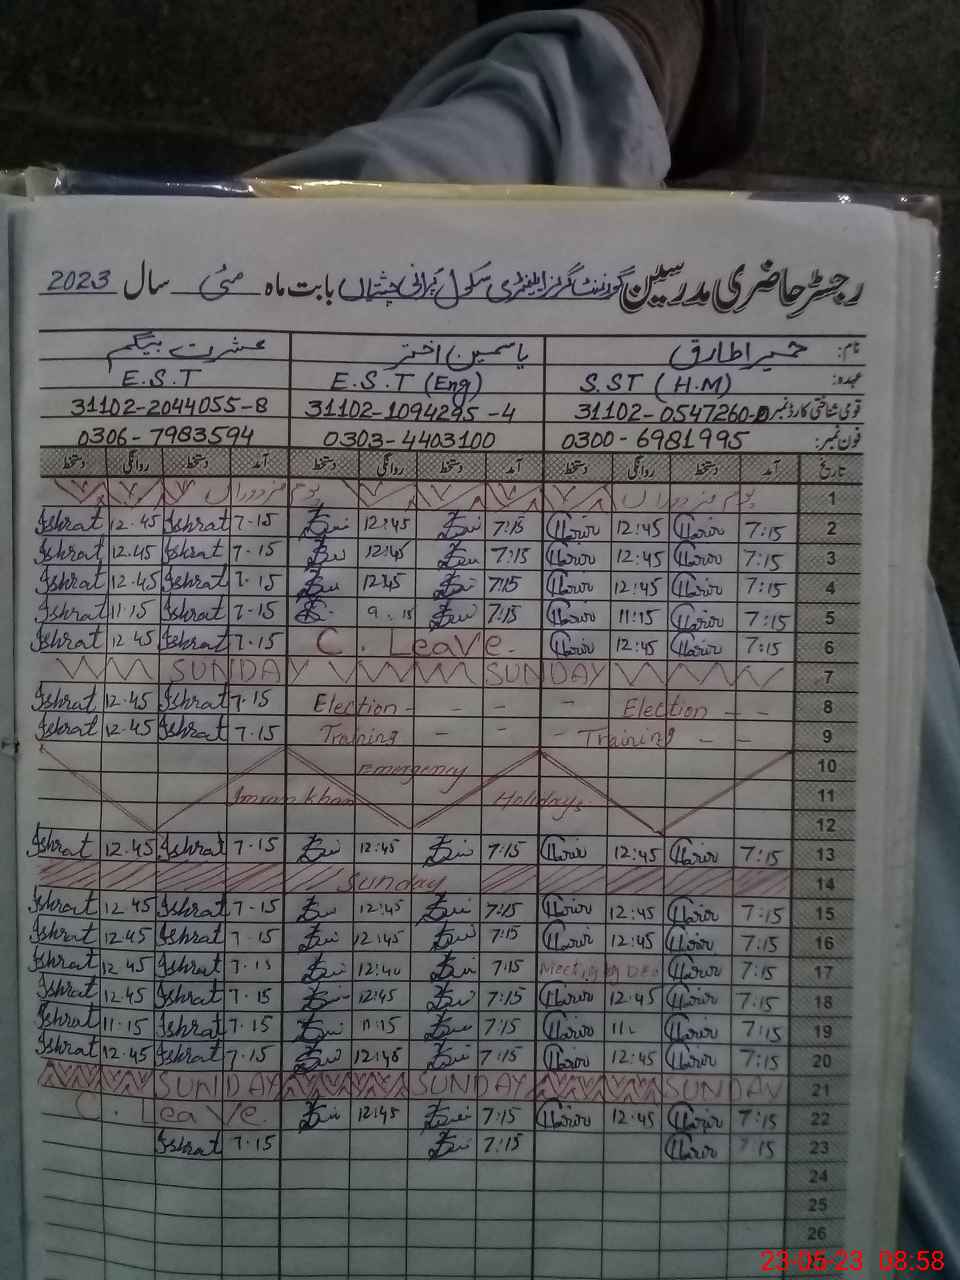 رجسٹر حاضری مدرسین گورنمنٹ گرلز ایلیمنٹری سکول پرانی چشتیاں بابت ماہ مئی سال 2023
نام: حمیرا طارق یاسمین اختر عشرت بیگم
عہدہ: S.ST (H.M) E.S.T (Eng) E.S.T
قومی شناختی کارڈ نمبر 31102-0547260- 31102-1094295-4 31102-2044055-8
فون نمبر: 0300-6981995 0303-4403100 0306-7983594
تاریخ آمد دستخط روانگی دستخط آمد دستخط روانگی دستخط آمد دستخط روانگی دستخط
1 یوم مزدوراں یوم مزدوراں
2 7:15 12:45 7:15 12:45 7-15 Ishrat 12.45 Ishrat
3 7:15 12:45 7:15 12:45 7-15 Ishrat 12.45 Ishrat
4 7:15 12:45 7:15 12:45 7-15 Ishrat 12.45 Ishrat
5 7:15 11:15 7:15 9:15 7-15 Ishrat 11-15 Ishrat
6 7:15 12:45 C. Leave. 7-15 Ishrat 12.45 Ishrat
7 SUNDAY SUNDAY
8 Election - - Election - - - - 7-15 Ishrat 12.45 Ishrat
9 Training - - Training - - - 7-15 Ishrat 12.45 Ishrat
10 Emergency
11 Imran khan Holidays.
12
13 7:15 12:45 7:15 12:45 7-15 Ishrat 12.45 Ishrat
14 Sunday
15 7:15 12:45 7:15 12:45 7-15 Ishrat 12.45 Ishrat
16 7:15 12:45 7:15 12:45 7-15 Ishrat 12.45 Ishrat
17 7:15 Meeting by DEO 7:15 12:40 7-15 Ishrat 12.45 Ishrat
18 7:15 12:45 7:15 12:45 7-15 Ishrat 12.45 Ishrat
19 7:15 7:15 11:15 7-15 Ishrat 11-15 Ishrat
20 7:15 12:45 7:15 12:45 7-15 Ishrat 12.45 Ishrat
21 SUNDAY SUNDAY SUNDAY
22 7:15 12:45 7:15 12:45 C. Leave.
23 7:15 7:15 7-15 Ishrat
24
25
26
23-05-23 08:58